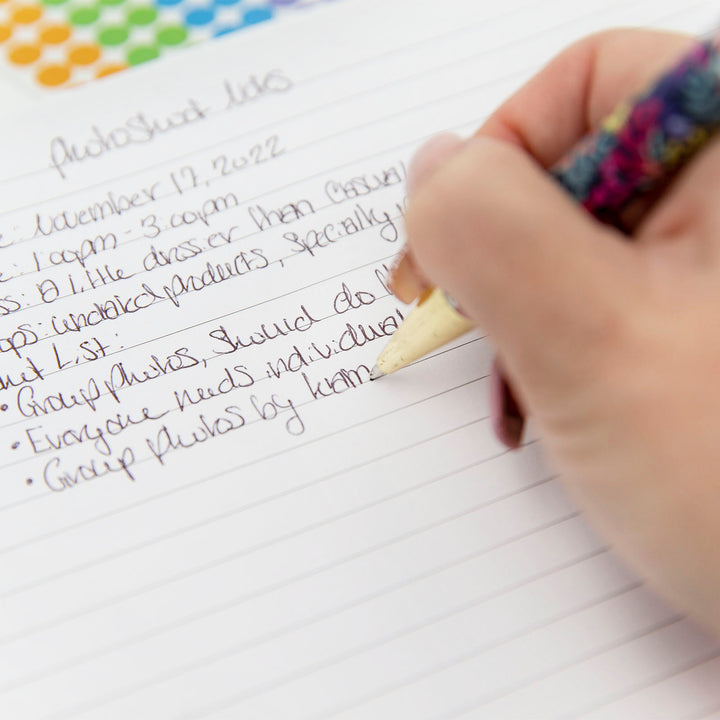 Photoshoot Info
e: November 17, 2022
e: 1:00pm - 3:00pm
ss: A little dressier than casual
ops: products, specially
List:
• Group photos, should do
• Everyone needs individual
• Group photos by team